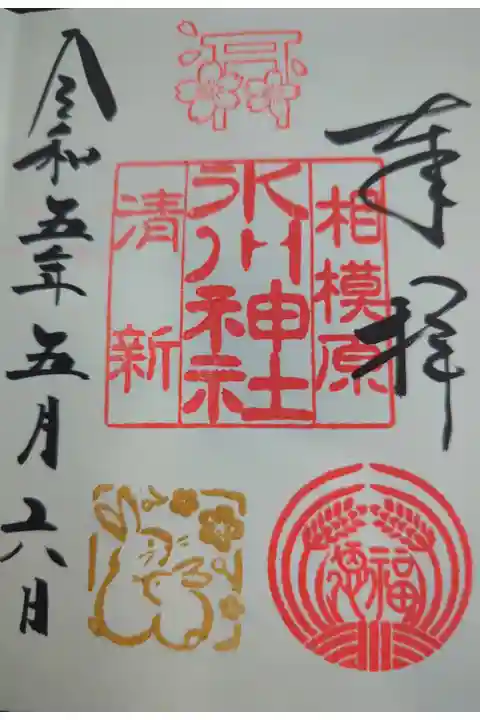 奉拝
相模原
氷川神社
清新
福徳
令和五年五月六日